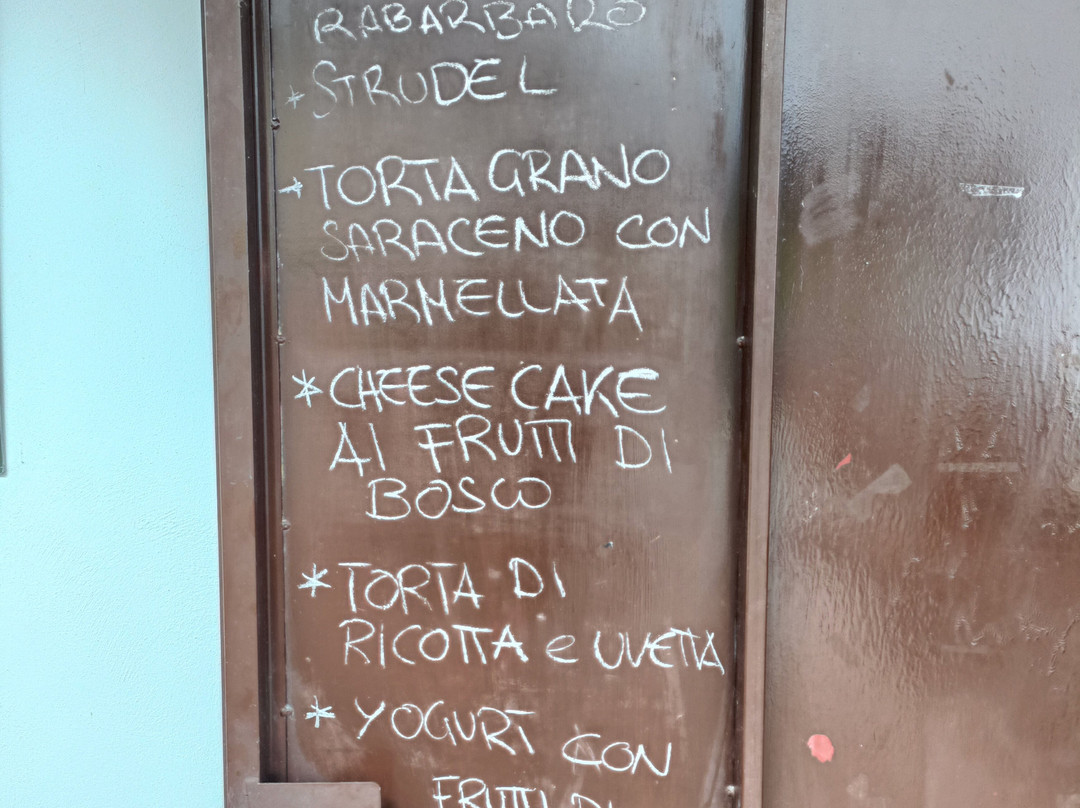 RABARBARO
* STRUDEL
* TORTA GRANO
SARACENO CON
MARMELLATA
* CHEESE CAKE
AI FRUTTI DI
BOSCO
* TORTA DI
RICOTTA e UVETTA
* YOGURT CON
FRUTTI DI